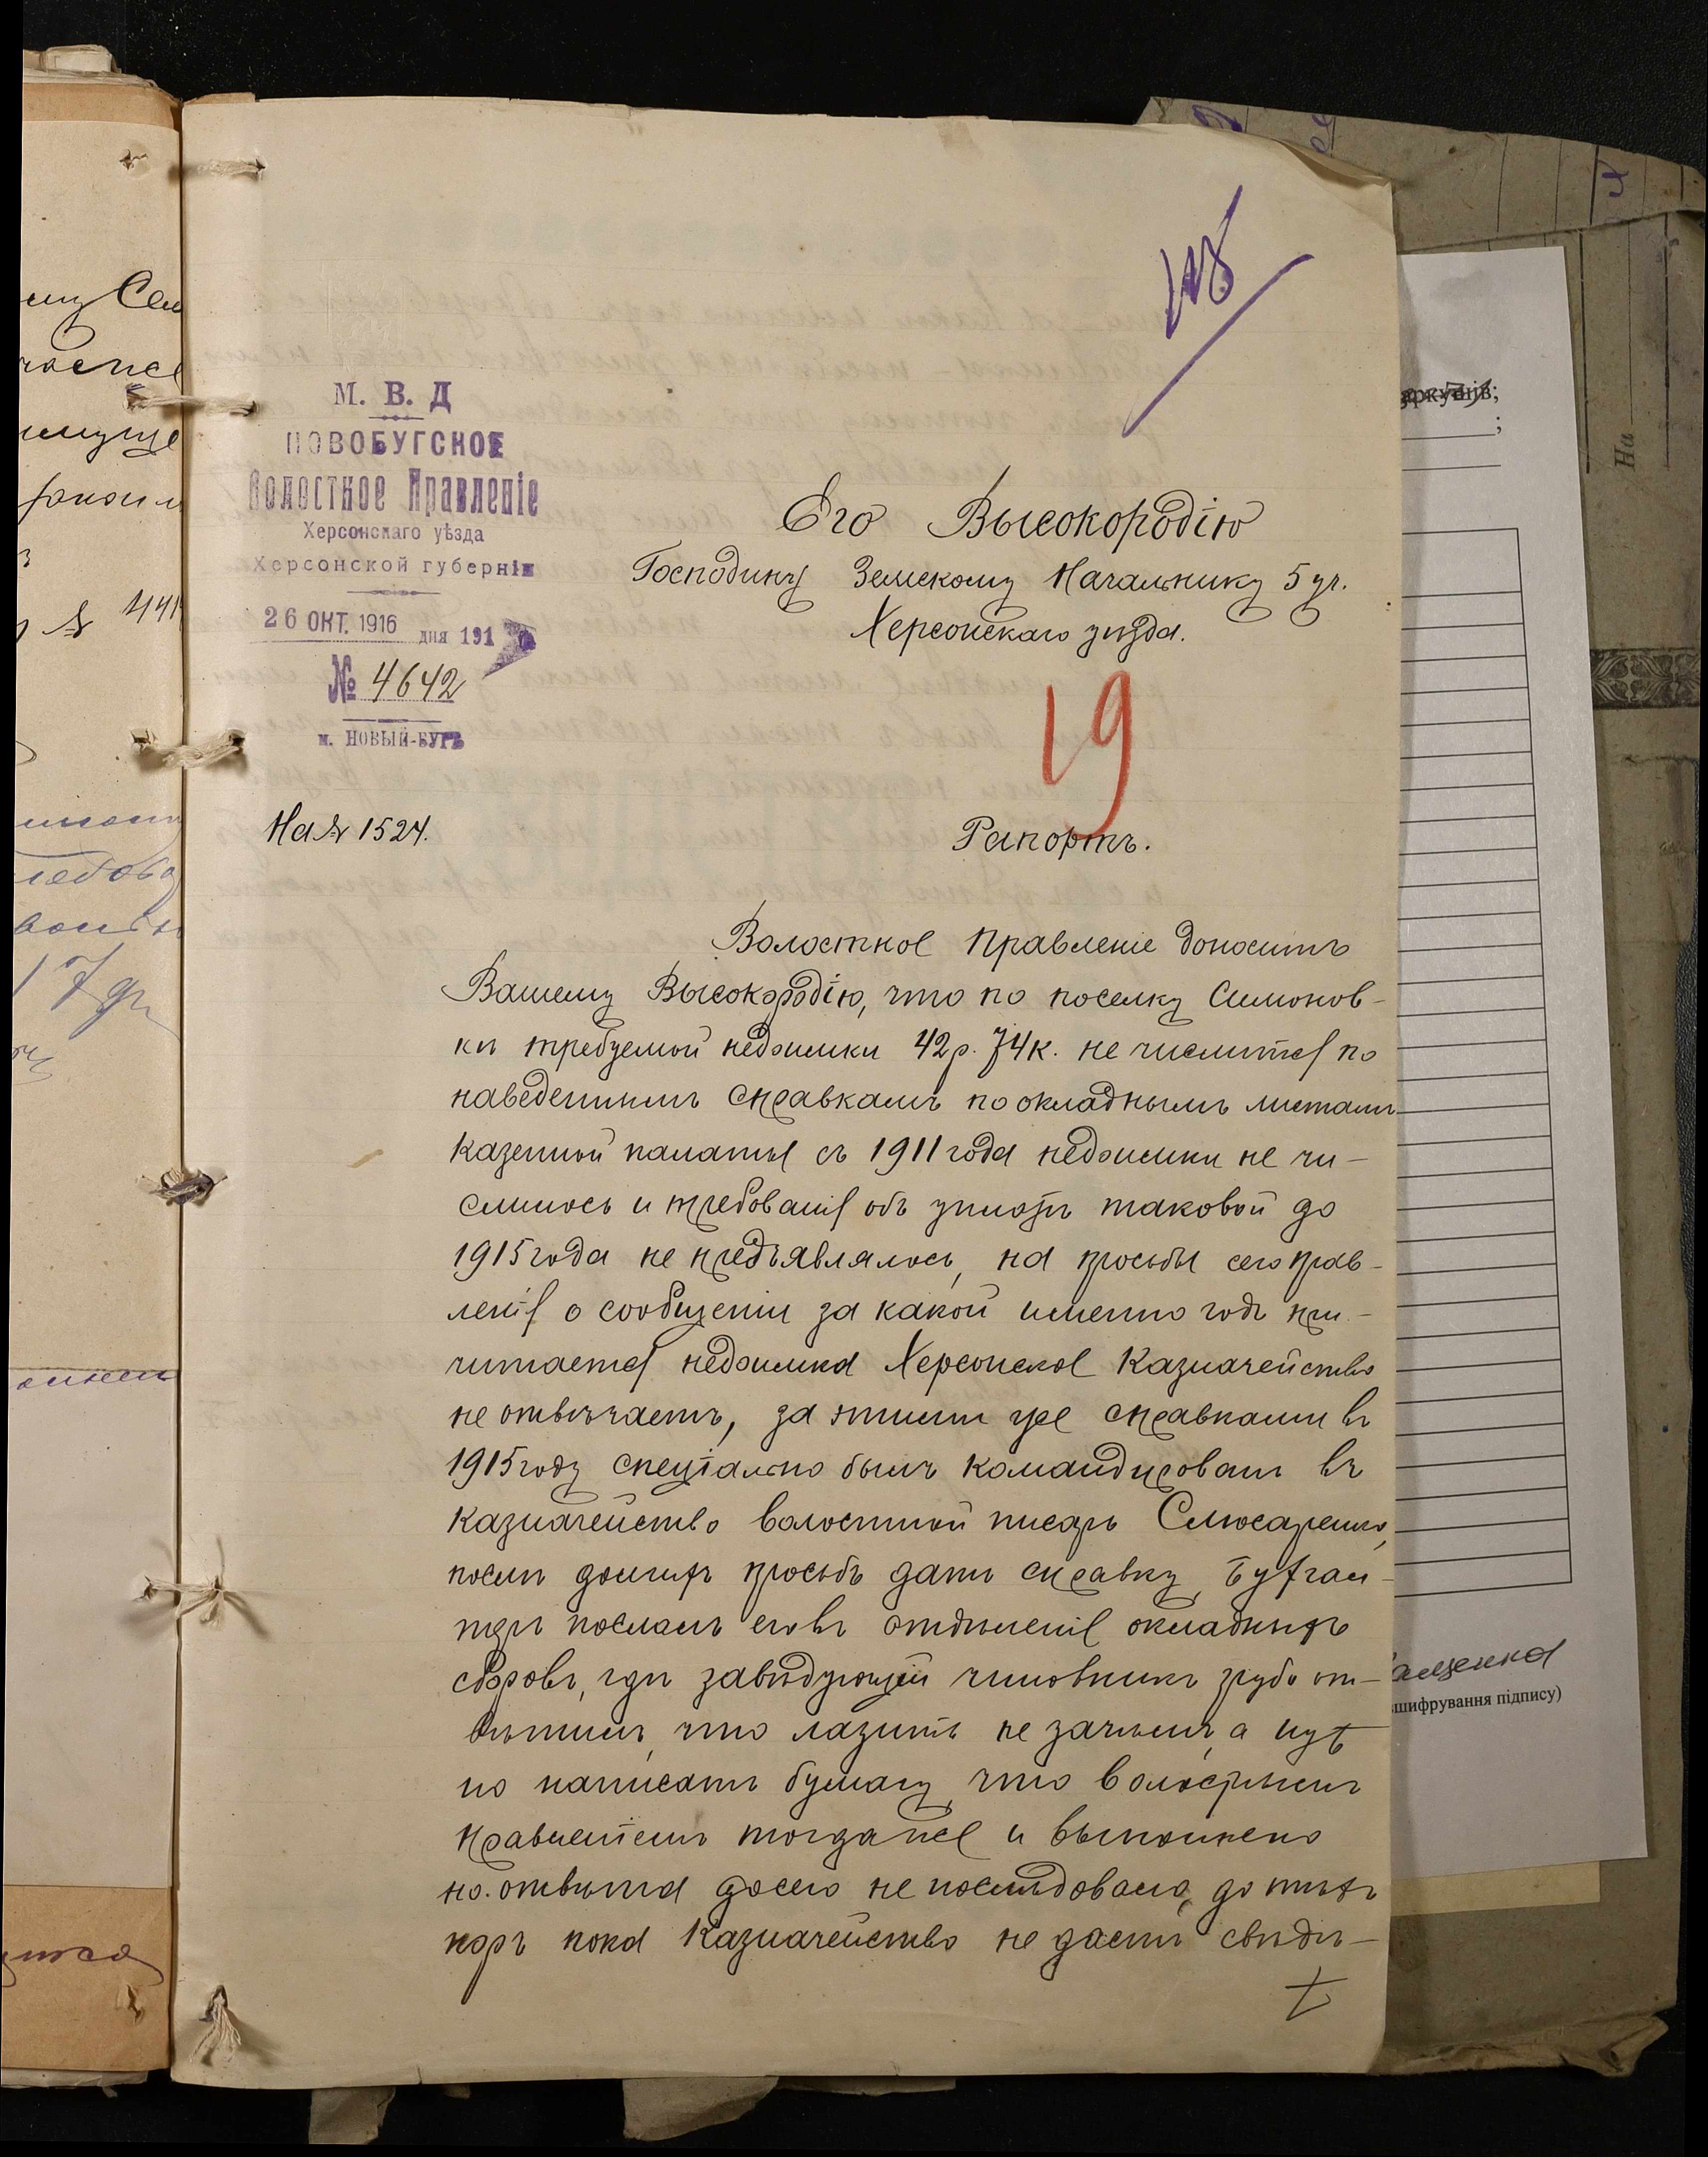 М. В. Д
НОВОБУГСКОЕ
Волостное Правленіе
Херсонскаго уѣзда
Херсонской губерніи
26 ОКТ. 1916 дня 191
№ 4642
м. НОВЫЙ-БУГЪ
Его Высокородію
Господину Земскому Начальнику 5 уч.
Херсонскаго уѣзда.
19
На № 1524.
Рапортъ.
Волостное Правленіе доноситъ
Вашему Высокородію, что по поселку Симонов-
кѣ требуемой недоимки 42 р. 74 к. не числится по
наведеннымъ справкамъ по окладнымъ листамъ
Казенной палаты съ 1911 года недоимки не чи-
слилось и требованія объ уплатѣ таковой до
1915 года не предъявлялось, на просьбы сего Прав-
ленія о сообщеніи за какой именно годъ при-
читается недоимка Херсонское Казначейство
не отвѣчаетъ, за этими же справками въ
1915 году спеціально былъ командированъ въ
Казначейство волостной писарь Слюсаренко,
послѣ долгихъ просьбъ дать справку, Бухгал-
теръ послалъ его въ отдѣленіе окладныхъ
сборовъ, гдѣ завѣдующій чиновникъ грубо от-
вѣтилъ, что лазить не зачѣмъ, а нуж
но написать бумагу, что волостнымъ
Правленіемъ тогда же и выполнено
но отвѣта досего не послѣдовало, до тѣхъ
поръ пока Казначейство не дастъ свѣдѣ-
аркушів;
;
На
ащенко
зшифрування підпису)